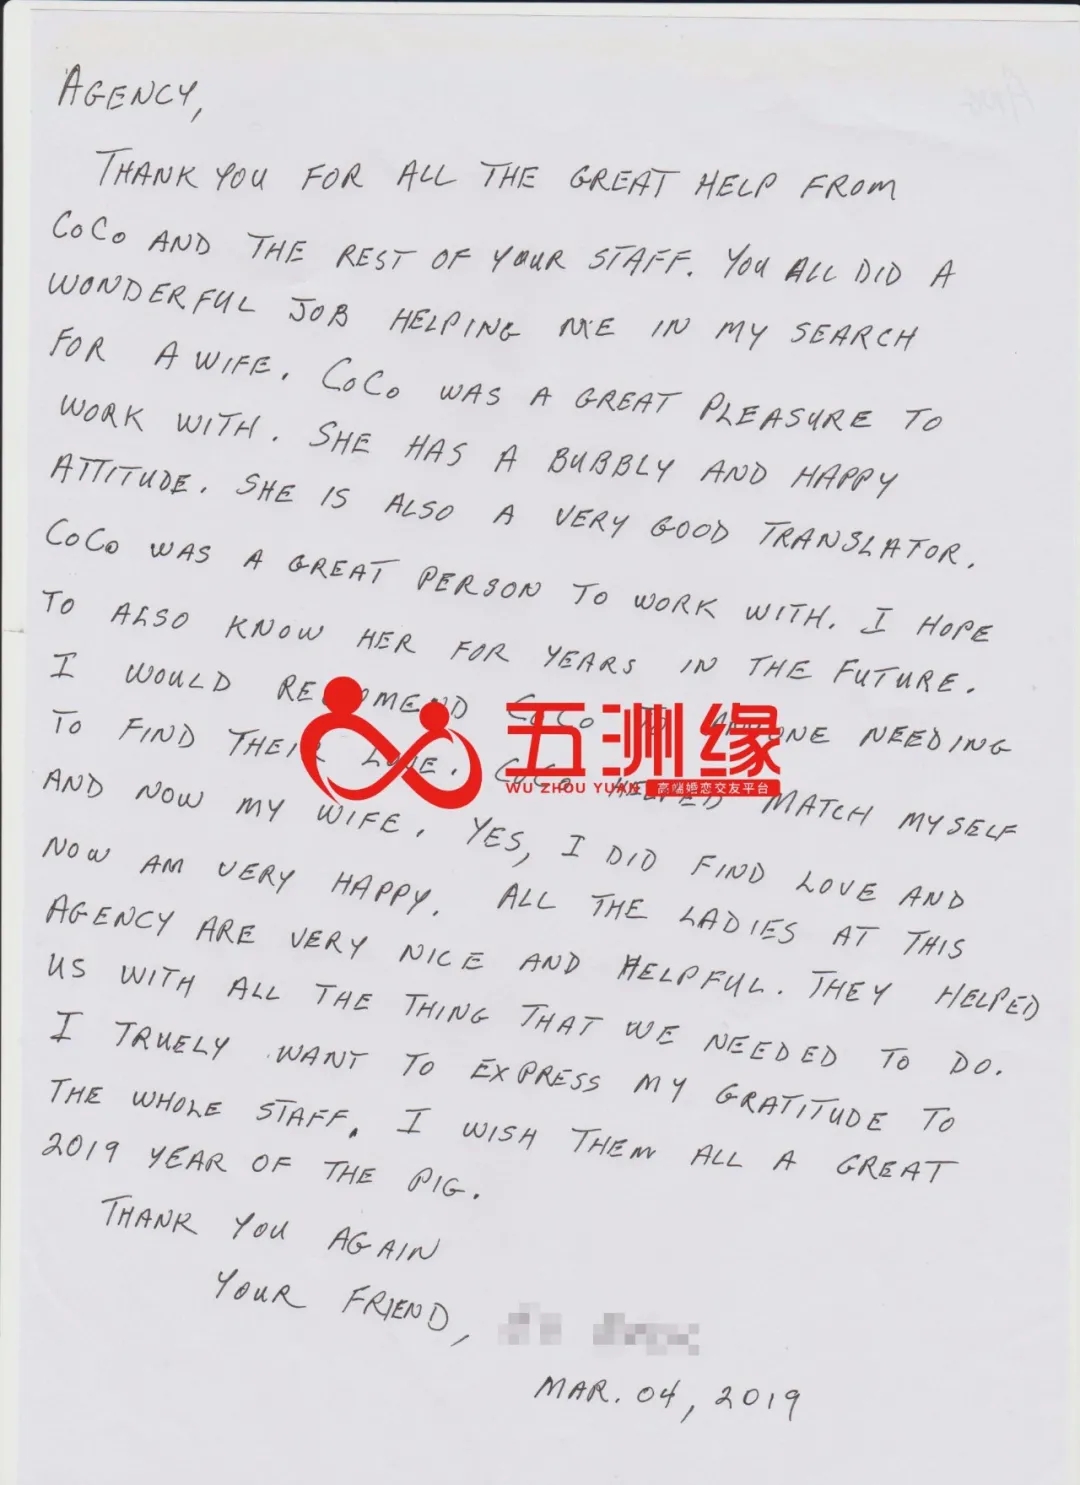 AGENCY,
THANK YOU FOR ALL THE GREAT HELP FROM
COCO AND THE REST OF YOUR STAFF. YOU ALL DID A
WONDERFUL JOB HELPING ME IN MY SEARCH
FOR A WIFE. COCO WAS A GREAT PLEASURE TO
WORK WITH. SHE HAS A BUBBLY AND HAPPY
ATTITUDE. SHE IS ALSO A VERY GOOD TRANSLATOR.
COCO WAS A GREAT PERSON TO WORK WITH. I HOPE
TO ALSO KNOW HER FOR YEARS IN THE FUTURE.
I WOULD COCO TO ANYONE NEEDING
TO FIND THEIR LOVE. COCO HELPED MATCH MYSELF
AND NOW MY WIFE. YES, I DID FIND LOVE AND
NOW AM VERY HAPPY. ALL THE LADIES AT THIS
AGENCY ARE VERY NICE AND HELPFUL. THEY HELPED
US WITH ALL THE THING THAT WE NEEDED TO DO.
I TRUELY WANT TO EXPRESS MY GRATITUDE TO
THE WHOLE STAFF. I WISH THEM ALL A GREAT
2019 YEAR OF THE PIG.
THANK YOU AGAIN
YOUR FRIEND,
MAR. 04, 2019
五洲缘
WU ZHOU YUAN 高端婚恋交友平台